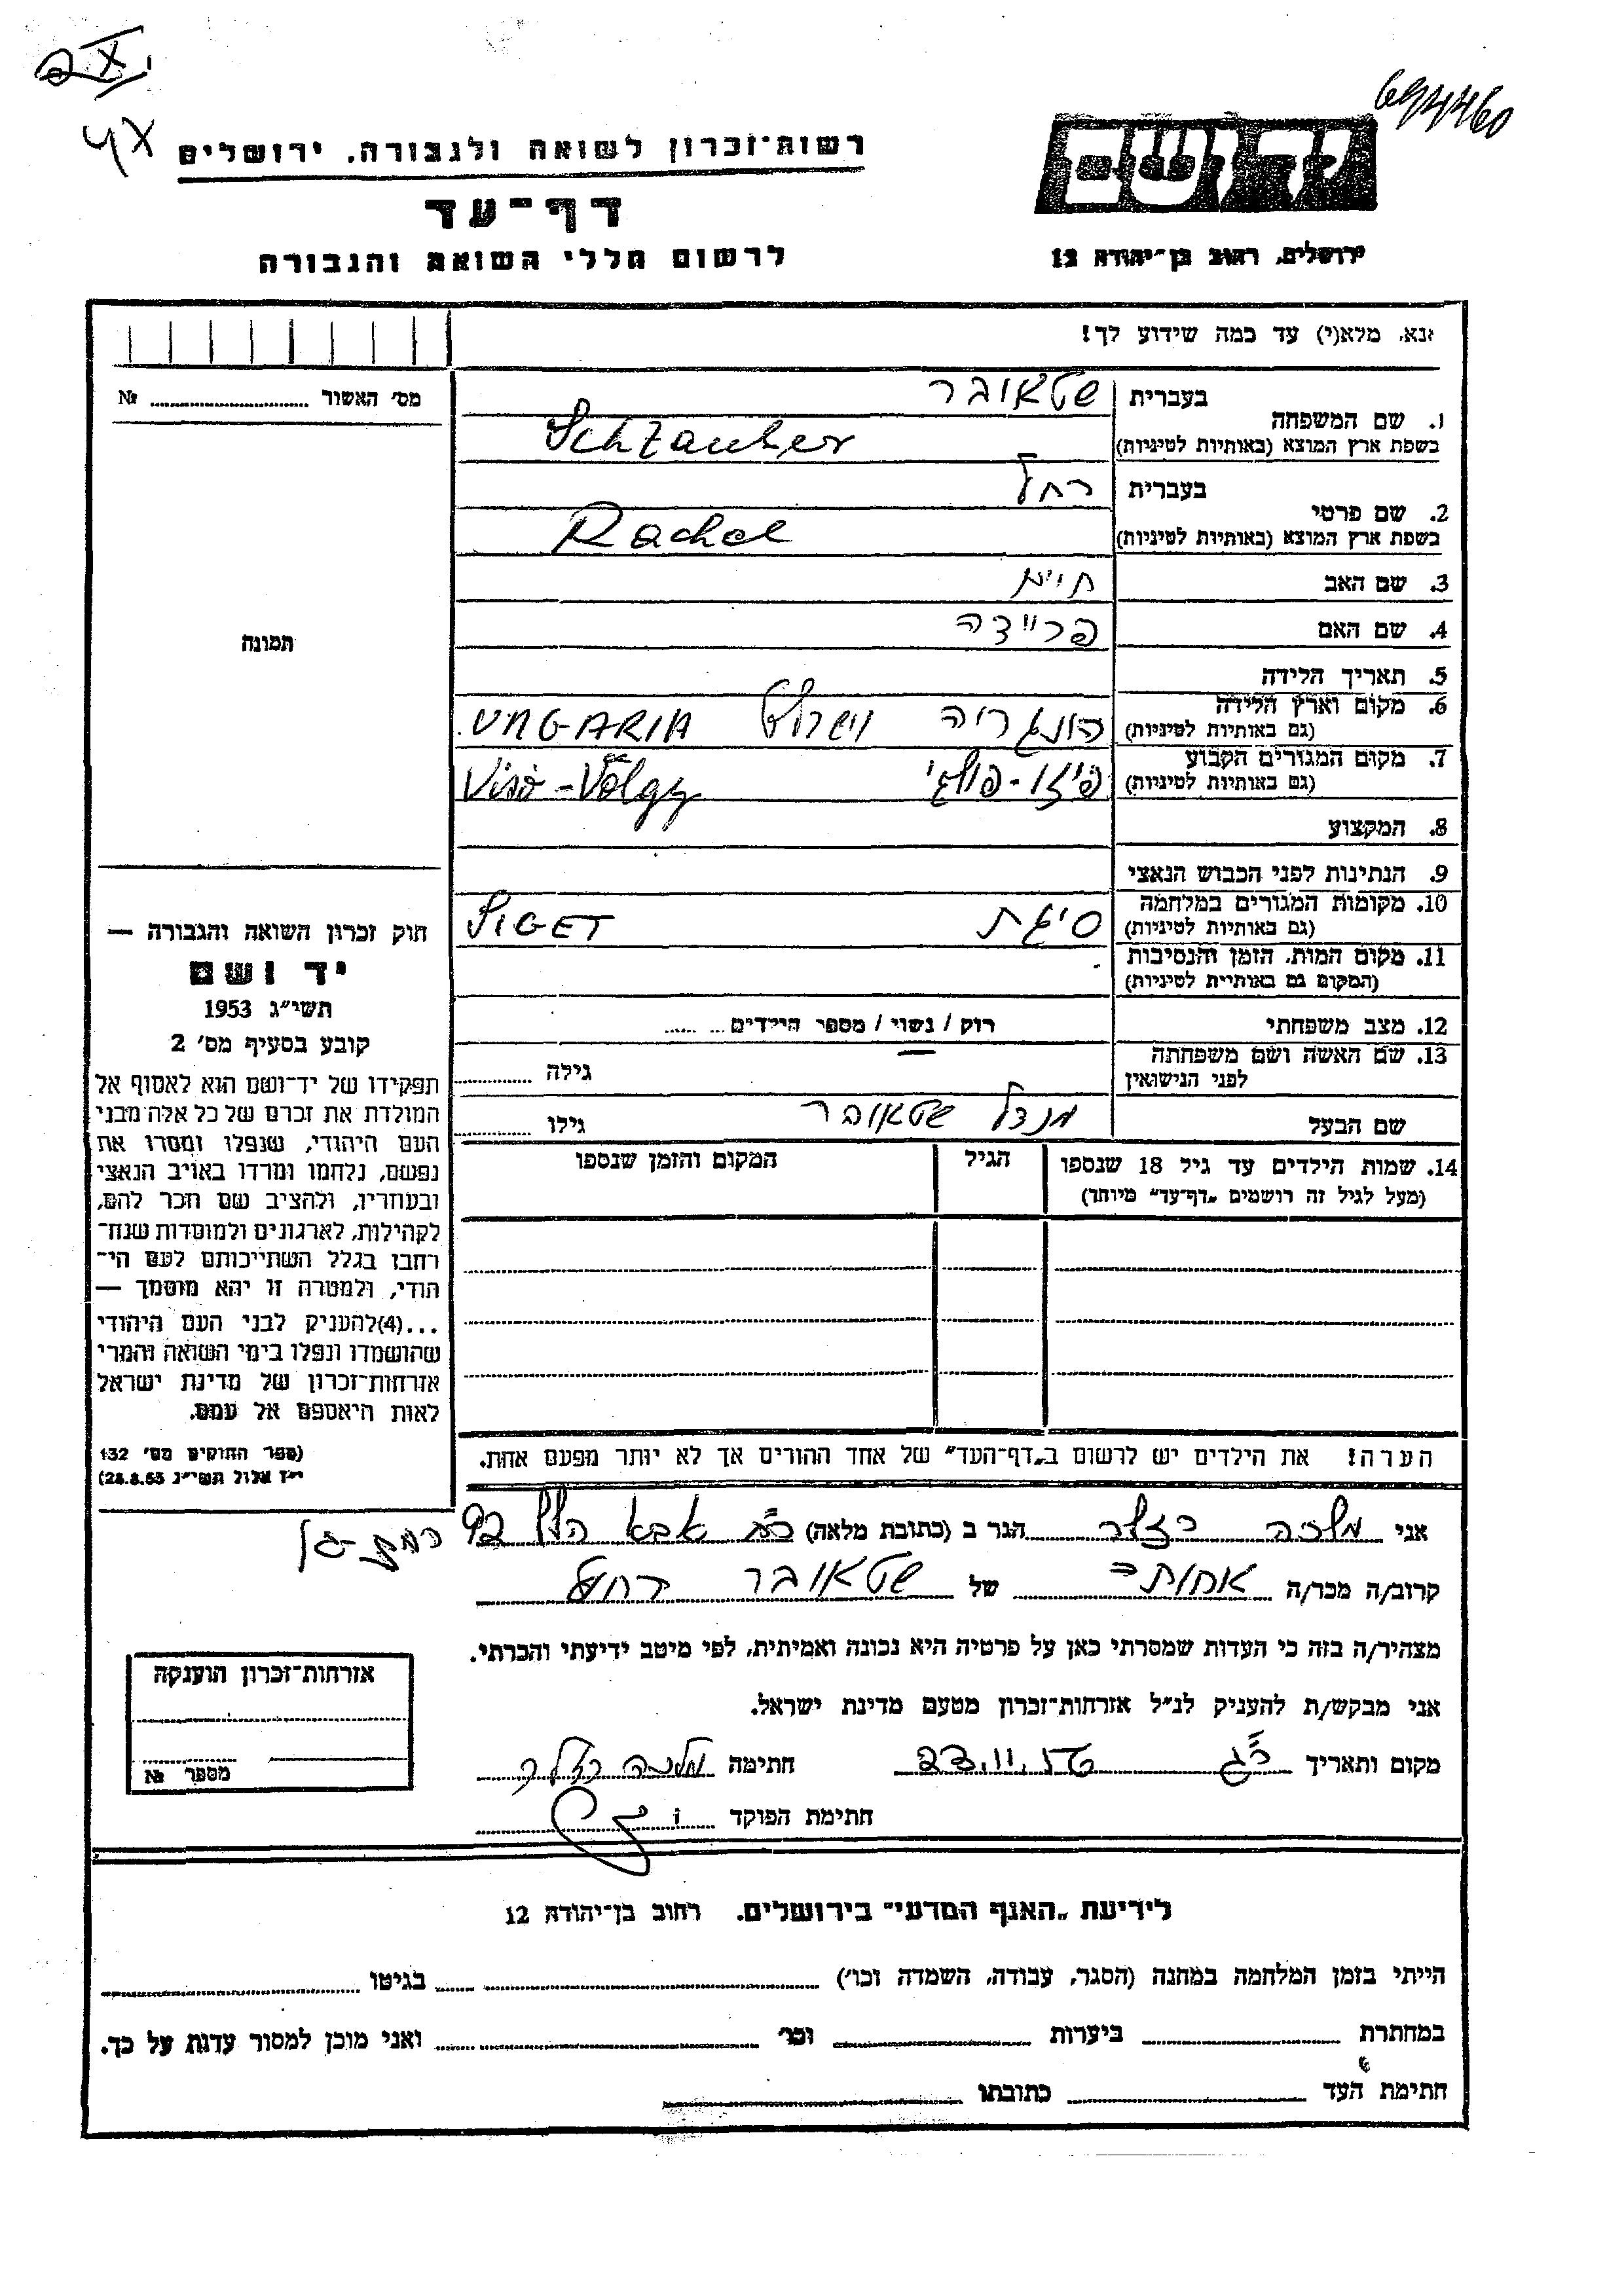 694460
רשות־זכרון לשואה ולגבורה. ירושלים
דף־עד
לרשום חללי השואה והגבורה
ירושלים, רחוב בן־יהודה 12
נא, מלא(י) עד כמה שידוע לך!
מס׳ האשור № 
בעברית שטאובר
1. שם המשפחה
בשפת ארץ המוצא (באותיות לטיניות) Schtauber
בעברית רחל
2. שם פרטי
בשפת ארץ המוצא (באותיות לטיניות) Rachel
3. שם האב חיים
4. שם האם פריידה
תמונה
5. תאריך הלידה
6. מקום וארץ הלידה הונגריה UNGARIA
(גם באותיות לטיניות)
7. מקום המגורים הקבוע Visó-Völgy
(גם באותיות לטיניות)
8. המקצוע
9. הנתינות לפני הכבוש הנאצי
10. מקומות המגורים במלחמה סיגת SIGET
(גם באותיות לטיניות)
11. מקום המות, הזמן והנסיבות
(המקום גם באותיות לטיניות)
12. מצב משפחתי רוק / נשוי / מספר הילדים
13. שם האשה ושם משפחתה
לפני הנישואין גילה
שם הבעל מנדל שטאובר גילו
14. שמות הילדים עד גיל 18 שנספו הגיל המקום והזמן שנספו
(מעל לגיל זה רושמים „דף־עד״ מיוחד)
חוק זכרון השואה והגבורה —
יד ושם
תשי״ג 1953
קובע בסעיף מס׳ 2
תפקידו של יד־ושם הוא לאסוף אל
המולדת את זכרם של כל אלה מבני
העם היהודי, שנפלו ומסרו את
נפשם, נלחמו ומרדו באויב הנאצי
ובעוזריו, ולהציב שם וזכר להם,
לקהילות, לארגונים ולמוסדות שנח־
רחבו בגלל השתייכותם לעם הי־
הודי, ולמטרה זו יהא מוסמך —
...(4)להעניק לבני העם היהודי
שהושמדו ונפלו בימי השואה והמרי
אזרחות־זכרון של מדינת ישראל
לאות היאספם אל עמם.
(ספר החוקים מס׳ 132
י״ז אלול תשי״ג 28.8.53)
הערה! את הילדים יש לרשום ב„דף־העד״ של אחד ההורים אך לא יותר מפעם אחת.
אני מלכה הגר ב (כתובת מלאה) אבא הלל 92 רמת-גן
קרוב/ה מכר/ה אחותה של שטאובר רחל
מצהיר/ה בזה כי העדות שמסרתי כאן על פרטיה היא נכונה ואמיתית, לפי מיטב ידיעתי והכרתי.
אני מבקש/ת להעניק לנ״ל אזרחות־זכרון מטעם מדינת ישראל.
מקום ותאריך ר״ג 23.11.56 חתימה מלכה
חתימת הפוקד
אזרחות־זכרון הוענקה
מספר №
לידיעת „האגף המדעי״ בירושלים. רחוב בן־יהודה 12
הייתי בזמן המלחמה במחנה (הסגר, עבודה, השמדה וכו׳) בגיטו
במחתרת ביערות וכו׳ ואני מוכן למסור עדות על כך.
חתימת העד כתובתו